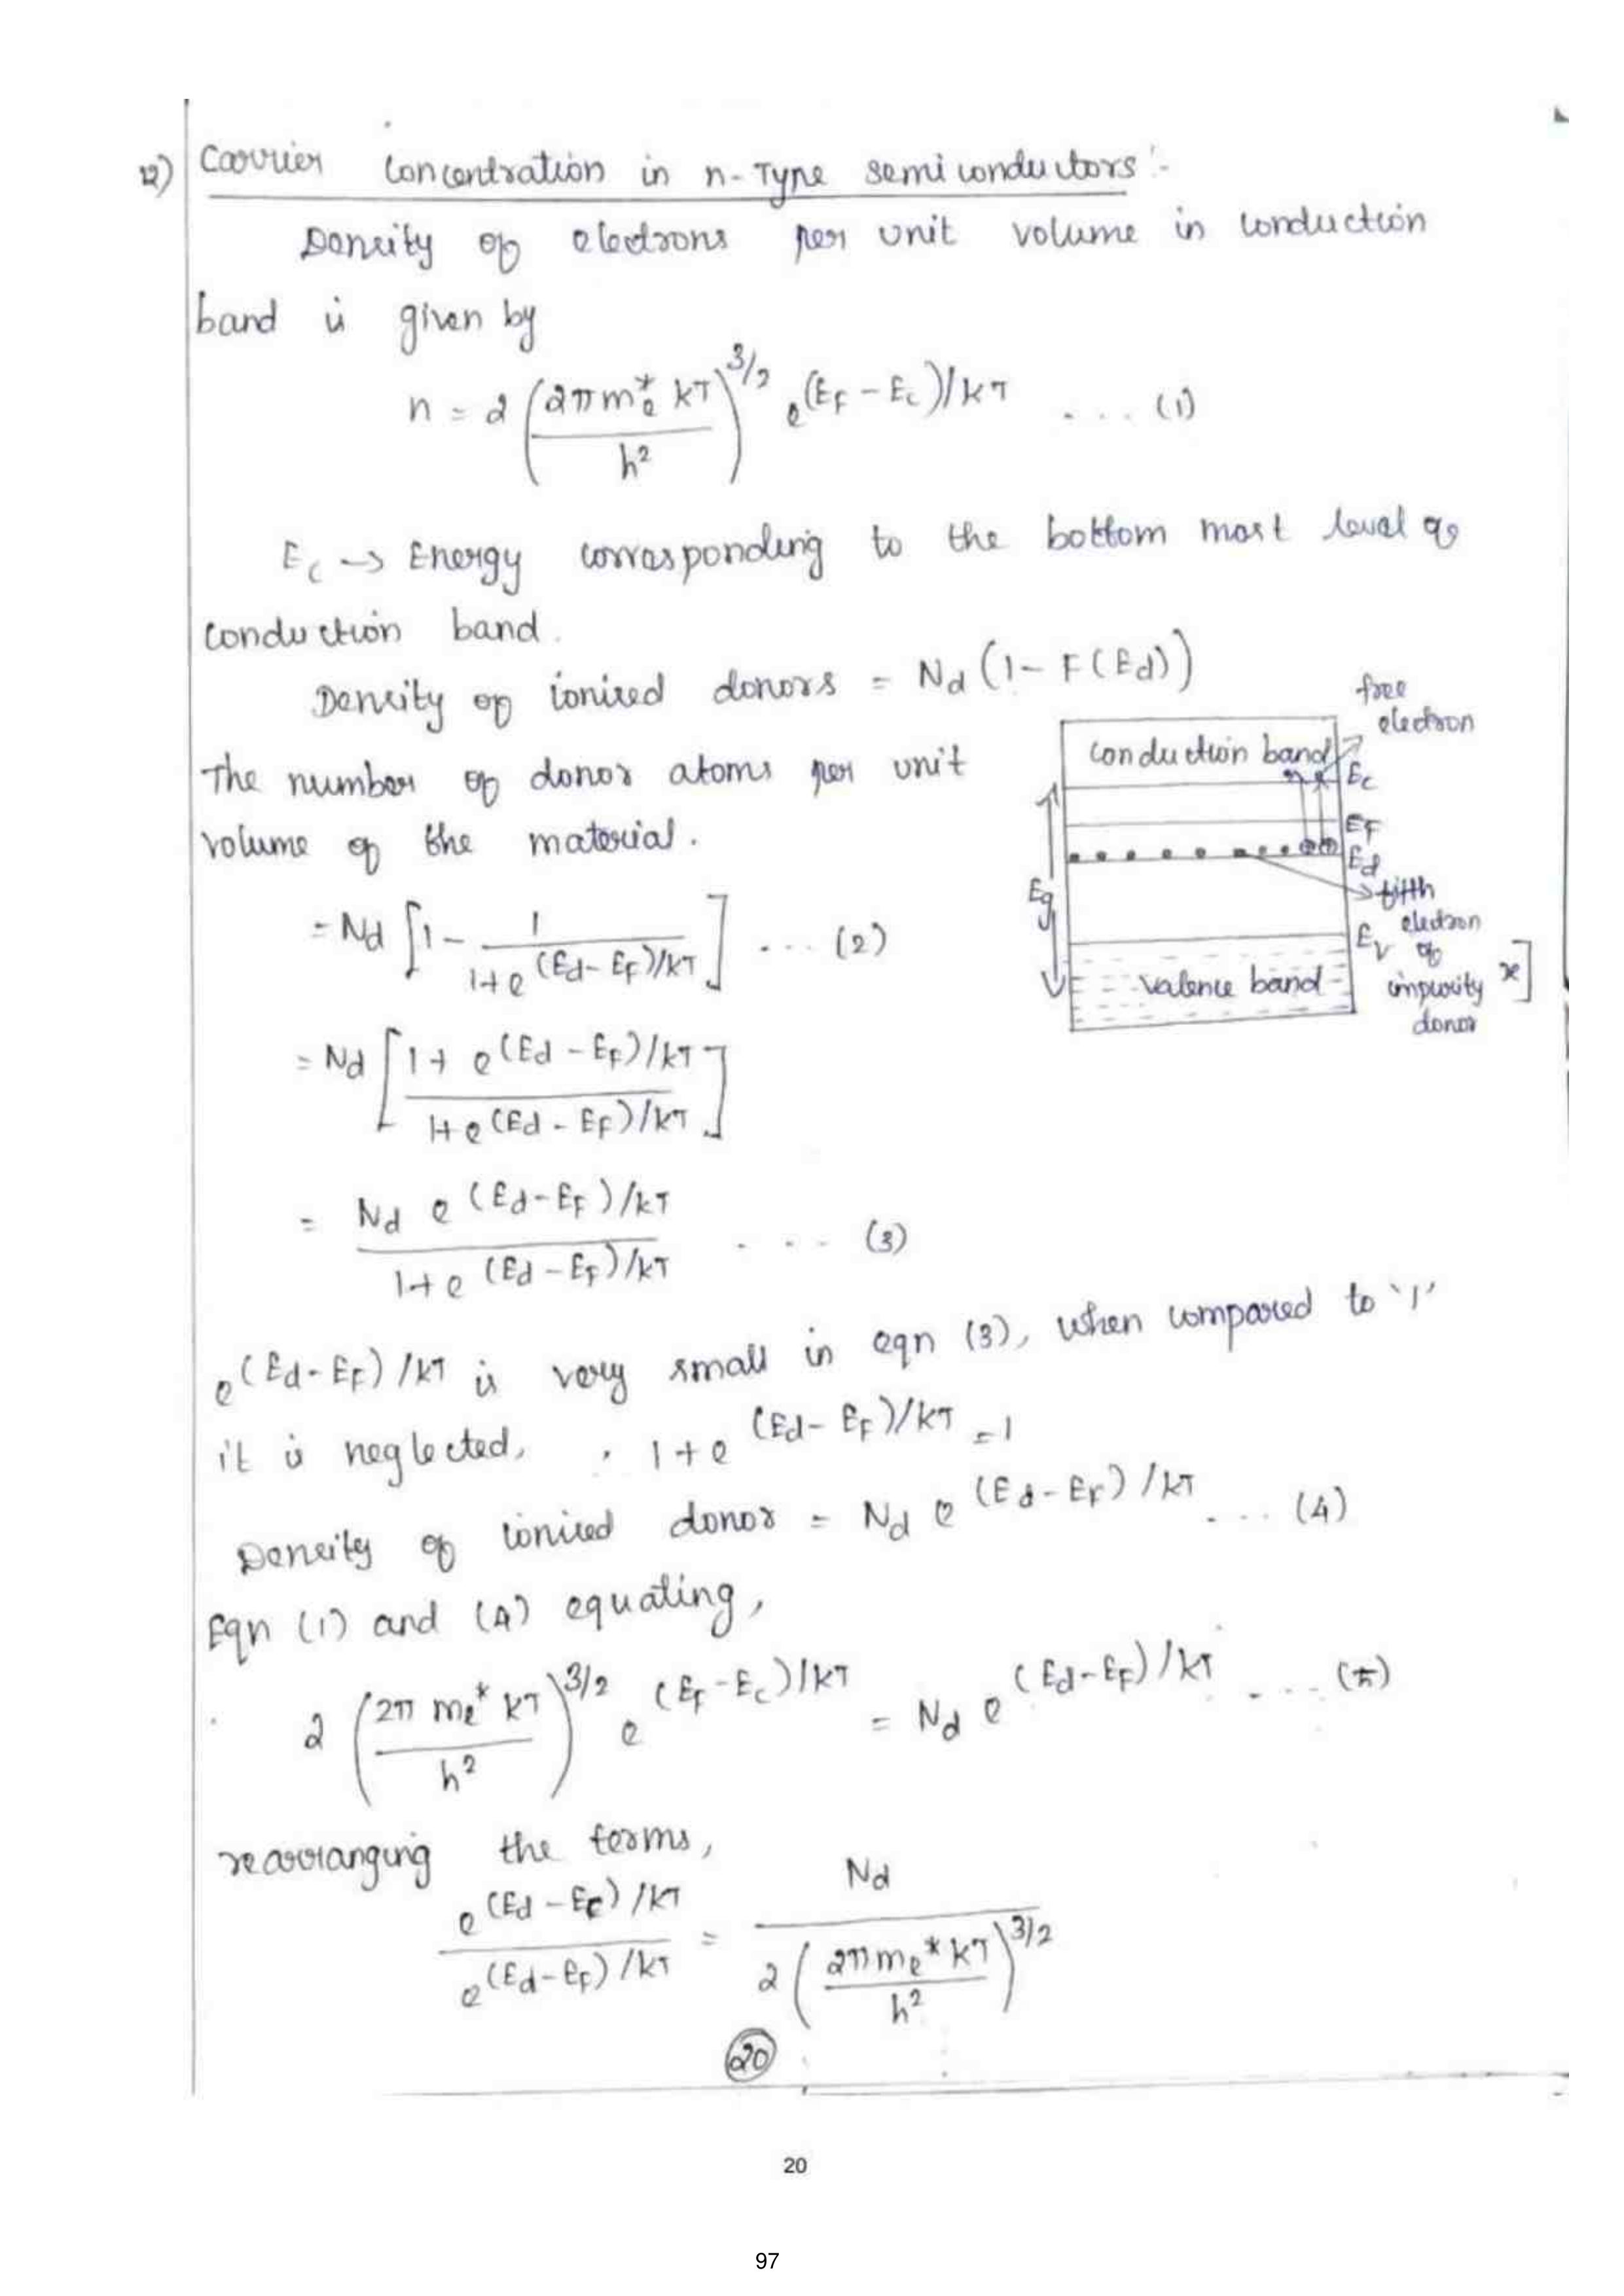 12) Carrier Concentration in n-Type semiconductors:-
Density of electrons per unit volume in conduction
band is given by
n = 2 (2πm*e kT / h²)^3/2 e^(EF - Ec)/kT .... (1)
Ec → Energy corresponding to the bottom most level of
conduction band.
Density of ionised donors = Nd (1 - F(Ed))
The number of donor atoms per unit
volume of the material.
free
electron
conduction band
Ec
EF
Ed
Eg
fifth
electron
of
impurity
donor
Ev
valence band
x]
= Nd [1 - 1 / 1+e^(Ed - EF)/kT] .... (2)
= Nd [1 + e^(Ed - EF)/kT / 1+e^(Ed - EF)/kT]
= Nd e^(Ed - EF)/kT / 1+e^(Ed - EF)/kT .... (3)
e^(Ed - EF)/kT is very small in eqn (3), when compared to '1'
it is neglected, . 1 + e^(Ed - EF)/kT = 1
Density of ionised donor = Nd e^(Ed - EF)/kT .... (4)
Eqn (1) and (4) equating,
2 (2π me* kT / h²)^3/2 e^(EF - Ec)/kT = Nd e^(Ed - EF)/kT .... (5)
rearranging the terms,
e^(Ed - Ec)/kT / e^(Ed - EF)/kT = Nd / 2 (2πme* kT / h²)^3/2
20
20
97